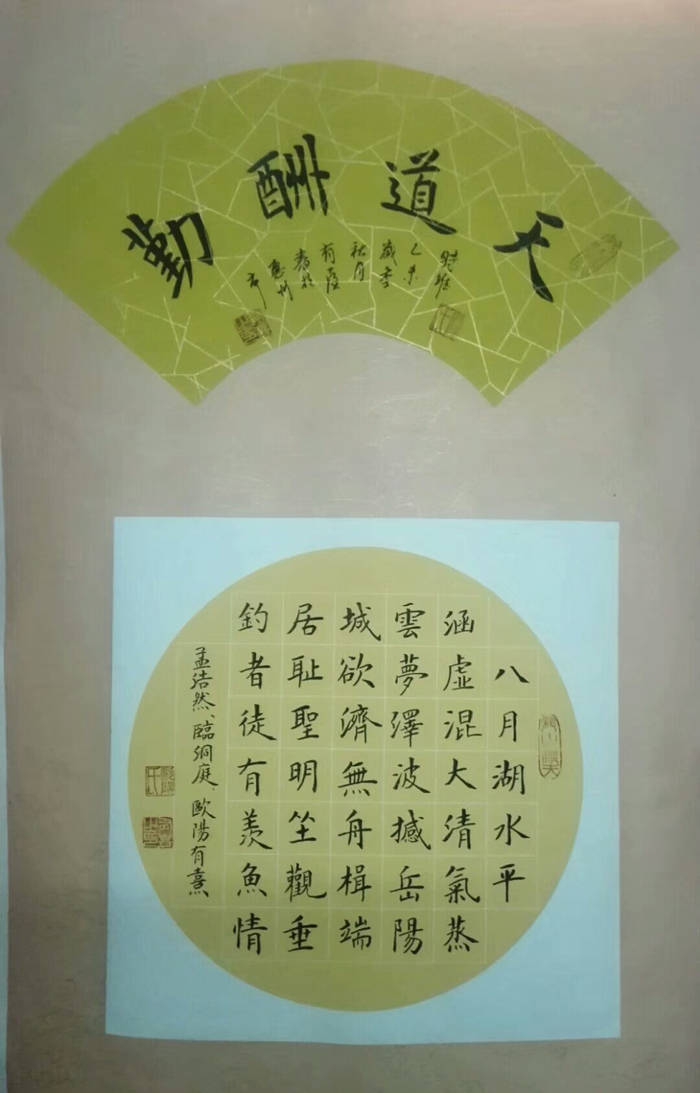 天道酬勤
時維
乙未
歲季
秋月
有熹
書於
惠州
八月湖水平
涵虛混大清氣蒸
雲夢澤波撼岳陽
城欲濟無舟楫端
居耻聖明坐觀垂
釣者徒有羨魚情
孟浩然、臨洞庭、歐陽有熹